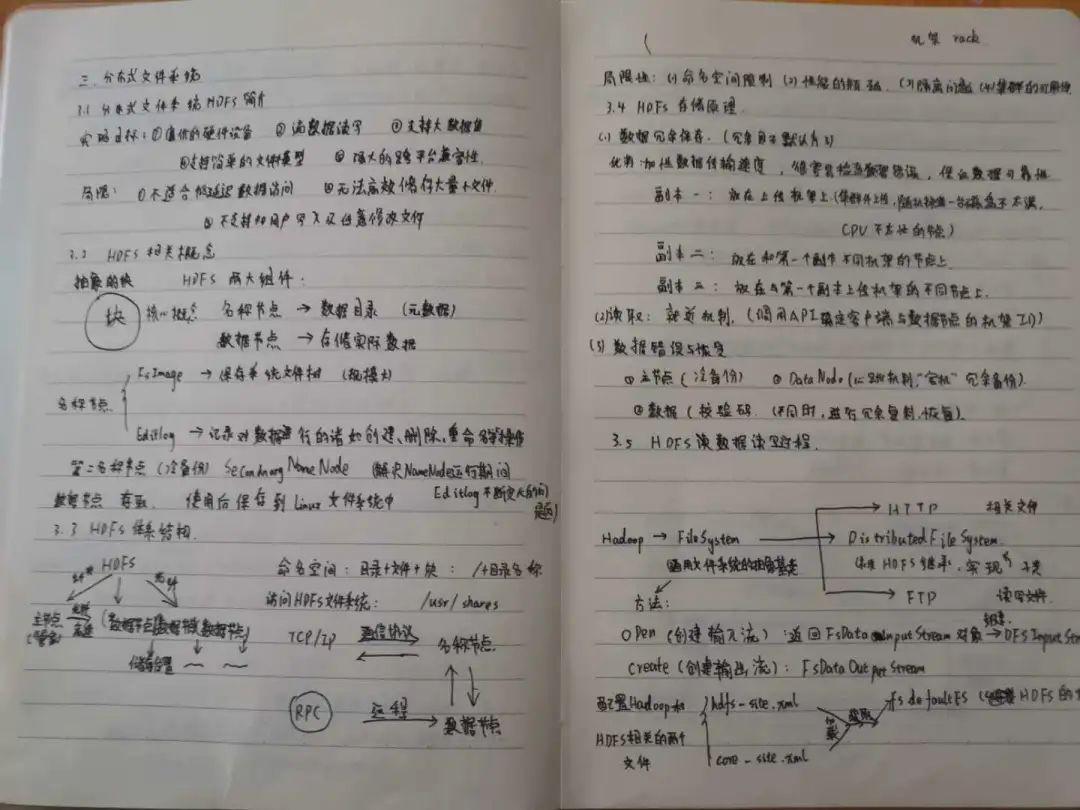 三.分布式文件系统
3.1 分布式文件系统HDFS简介
实现目标:①廉价的硬件设备 ②流数据读写 ③支持大数据集
④支持简单的文件模型 ⑤强大的跨平台兼容性.
局限: ①不适合低延迟数据访问 ②无法高效储存大量小文件
③不支持多用户写入及任意修改文件
3.2 HDFS相关概念
抽象的块 HDFS 两大组件:
块 核心概念 名称节点 → 数据目录 (元数据)
数据节点 → 存储实际数据
名称节点
FsImage → 保存系统文件树 (规模大)
Editlog → 记录对数据进行的诸如创建、删除、重命名等操作
第二名称节点 (冷备份) SecondnaryNameNode (解决NameNode运行期间
Editlog不断变大的问题)
数据节点 存取. 使用后保存到Linux文件系统中
3.3 HDFS体系结构.
HDFS
主节点 (数据节点 数据节点 数据节点)
(管家)
储存位置
命名空间:目录+文件+块: /+目录名称
访问HDFS文件系统: /usr/shares
TCP/IP 通信协议 名称节点
RPC 远程 数据节点
机架 rack
局限性: (1)命名空间限制 (2)性能的瓶颈. (3)隔离问题 (4)集群的可用性
3.4 HDFS 存储原理.
(1) 数据冗余保存. (冗余因子默认为3)
优势:加快数据传输速度, 很容易检查数据错误, 保证数据可靠性
副本一: 放在上传机架上.(集群外上传,随机挑选一台磁盘不太满.
CPU不太忙的节点)
副本二: 放在和第一个副本不同机架的节点上.
副本三: 放在与第一个副本上传机架的不同节点上.
(2)读取: 就近机制. (调用API确定客户端与数据节点的机架ID)
(3) 数据错误与恢复
①主节点 (冷备份) ②DataNode (心跳机制,"宕机"冗余备份).
③数据 (校验码. 不同时,进行冗余复制,恢复).
3.5 HDFS读数据读写过程.
HTTP 相关文件
Hadoop → FileSystem → DistributedFileSystem.
通用文件系统的抽象基类 HDFS继承,实现 子类
FTP 读写文件.
方法:
open (创建输入流) :返回FsDataInputStream对象 → DFSInputStr
create (创建输出流): FsDataOutputStream
配置Hadoop和 hdfs-site.xml 加载 fs.defaultFS (HDFS的
HDFS相关的两个
文件 core-site.xml